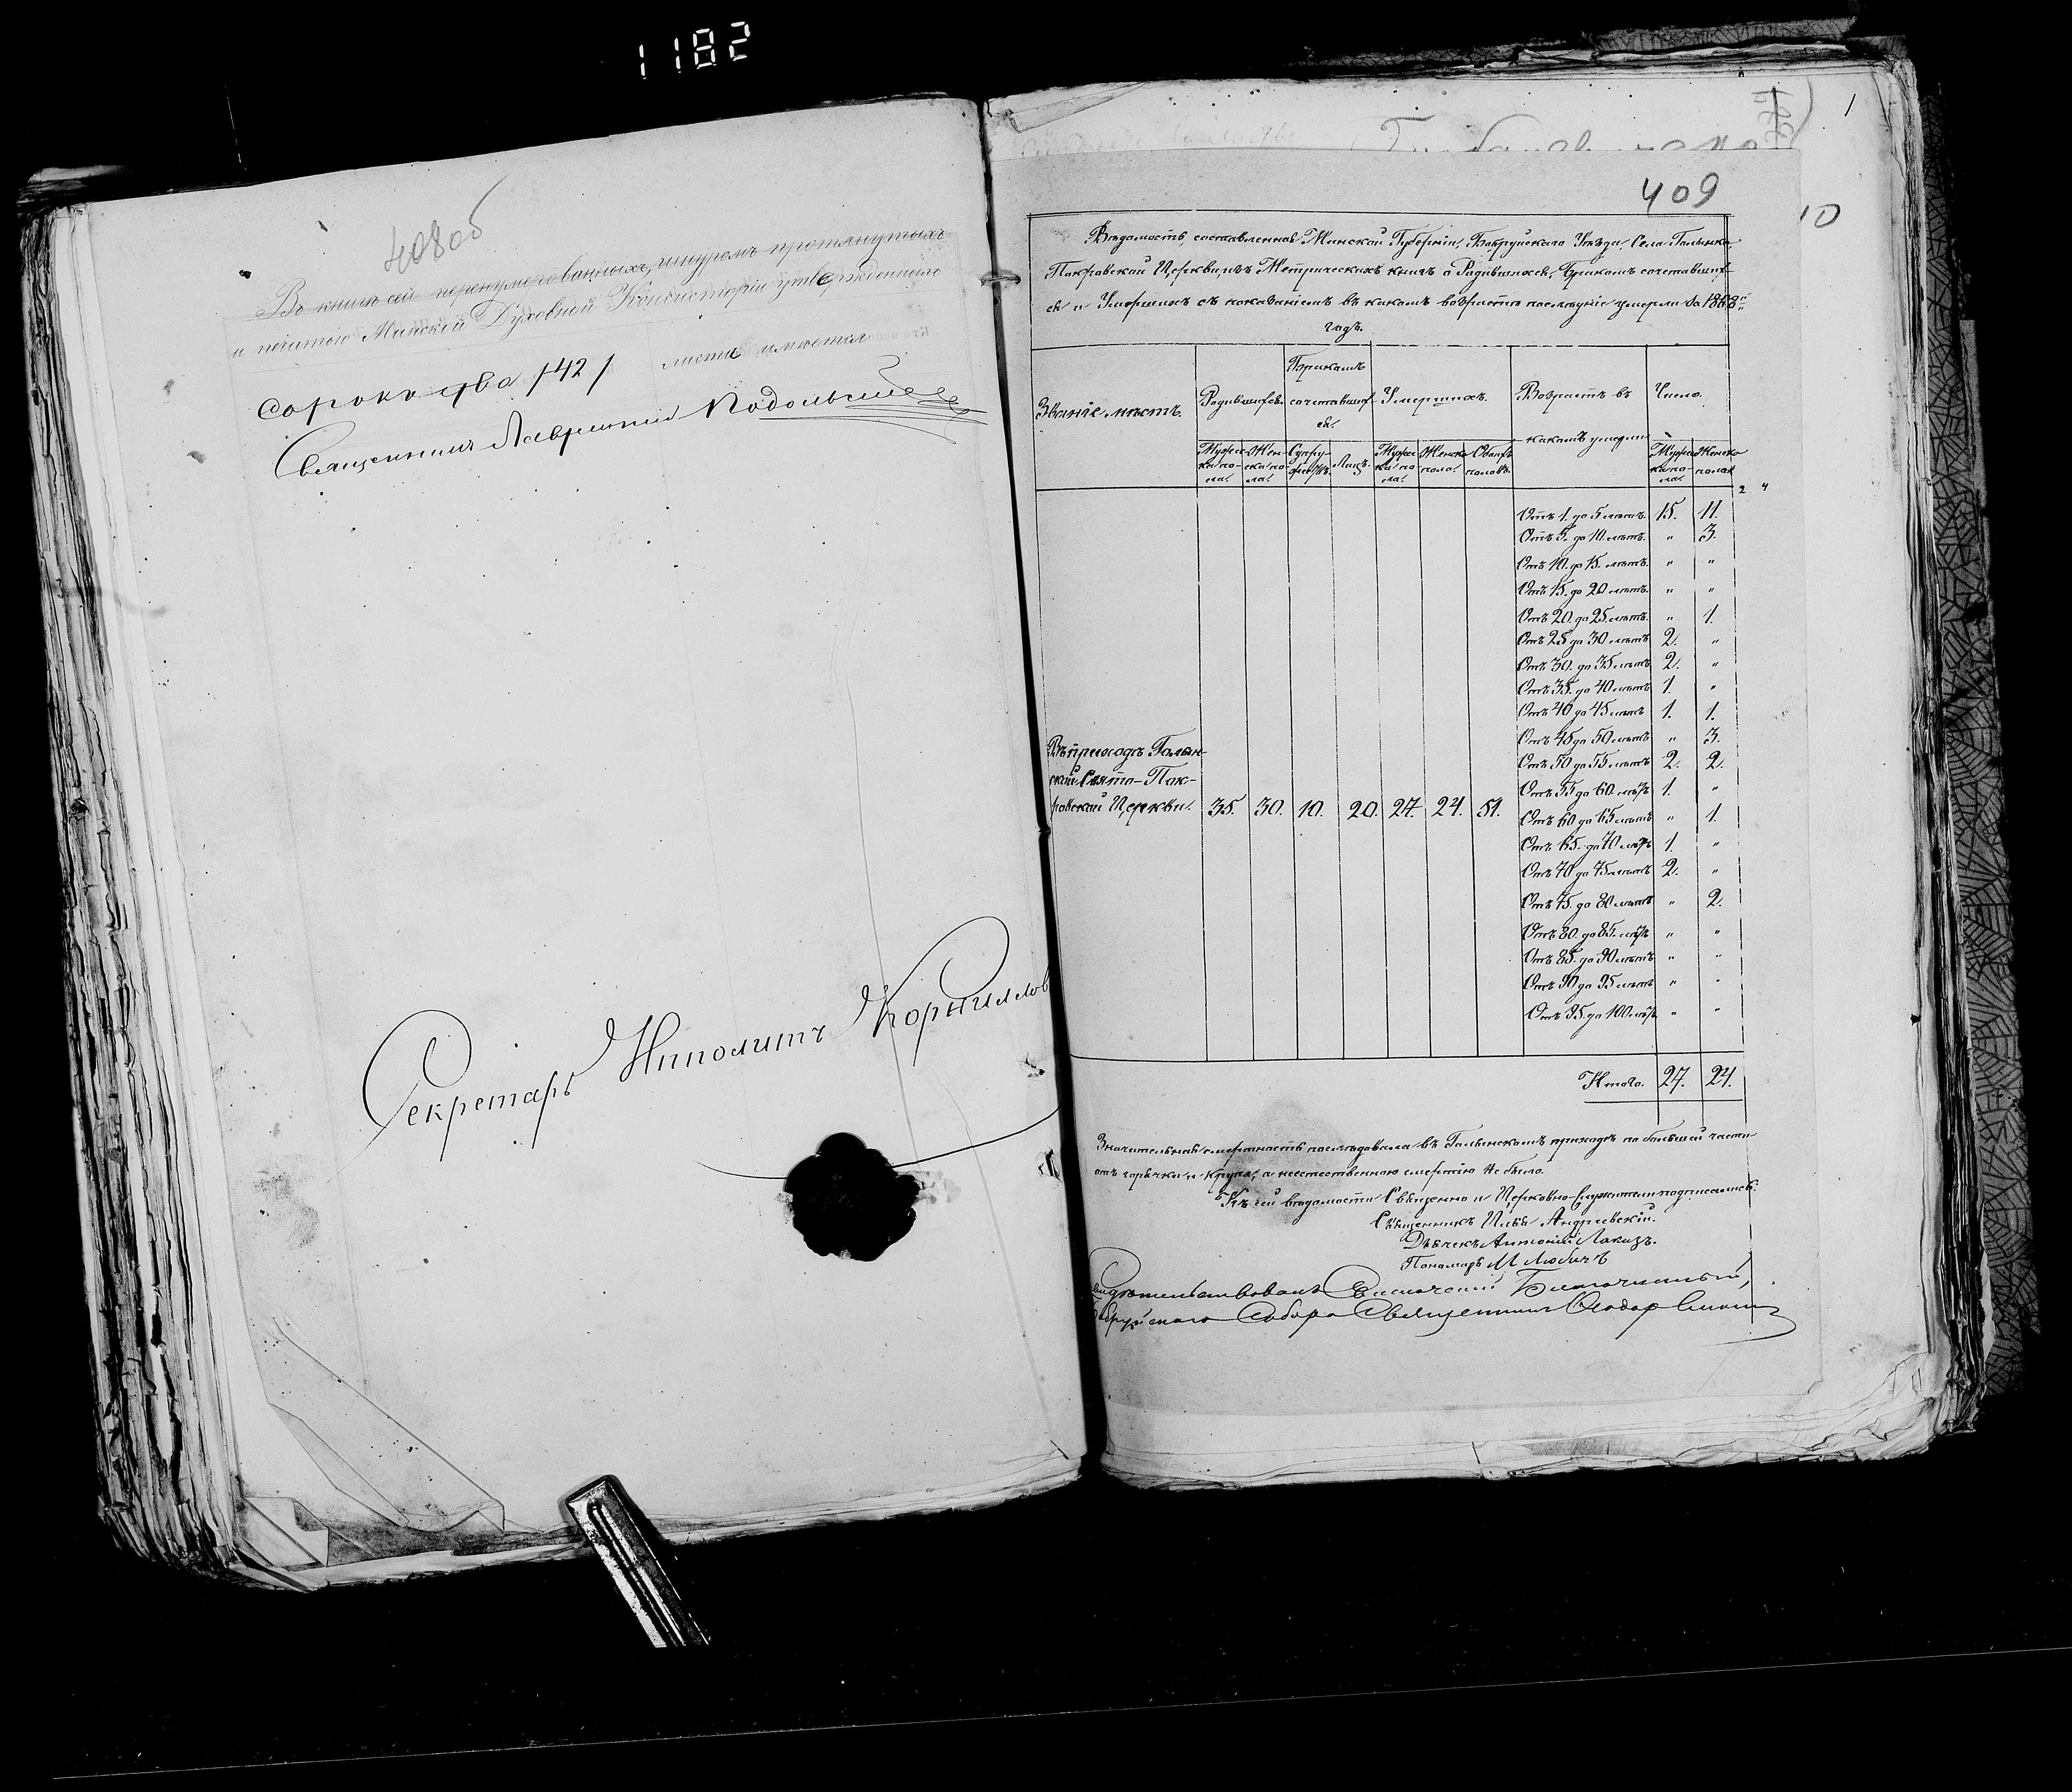 1182
408об
Въ книгѣ сей перенумерованныхъ, шнуромъ протянутыхъ
и печатью Минской Духовной Консисторіи утвержденныхъ
сорокъ два /42/ листа имѣется
Священникъ Лаврентий Подольский
Секретарь Ипполитъ Корниллов
1
409
10
Вѣдомость, составленная Минской Губерніи, Бобруйскаго Уѣзда, Села Голынки,
Покровской Церкви, изъ Метрическихъ книгъ о Родившихся, Бракомъ сочетавших-
ся и Умершихъ съ показаніемъ въ какомъ возрастѣ послѣдніе умерли за 1868й
годъ.
Званіе мѣстъ.
Родившихся.
Бракомъ
сочетавших-
ся.
Умершихъ.
Возрастъ въ
какомъ умерли
Число.
Мужес-
ка по-
ла.
Жен-
ска по-
ла.
Супру-
жествъ.
Лицъ.
Мужес-
ка по-
ла.
Женска
пола.
Обоихъ
половъ.
Мужес-
ка по-
ла.
Женска
пола.
2 4
Отъ 1. до 5 лѣтъ. 15. 11.
Отъ 5. до 10. лѣтъ. " 3.
Отъ 10. до 15. лѣтъ. " "
Отъ 15. до 20 лѣтъ. " "
Отъ 20. до 25. лѣтъ. " 1.
Отъ 25 до 30 лѣтъ 2. "
Отъ 30. до 35 лѣтъ 2. "
Отъ 35. до 40 лѣтъ 1. "
Отъ 40 до 45 лѣтъ 1. 1.
Отъ 45 до 50 лѣтъ " 3.
Отъ 50 до 55 лѣтъ 2. 2.
Отъ 55 до 60. лѣтъ 1. "
Отъ 60 до 65 лѣтъ " 1.
Отъ 65. до 70 лѣтъ 1. "
Отъ 70 до 75 лѣтъ 2. "
Отъ 75. до 80 лѣтъ " 2.
Отъ 80. до 85. лѣтъ " "
Отъ 85. до 90 лѣтъ " "
Отъ 90 до 95 лѣтъ " "
Отъ 95. до 100 лѣтъ " "
Въ приходѣ Голын-
ской Свято-Пок-
ровской Церкви. 35. 30. 10. 20. 27. 24. 51.
Итого. 27. 24.
Значительная смертность послѣдовала въ Голынскомъ приходѣ по большей части
отъ горячки и крупа, а неестественною смертію не было.
Къ сей вѣдомости Священно и Церковно-Служители подписались:
Священникъ Илья Андреевскій.
Дьячекъ Антоній Локизъ.
Пономарь М Любичъ
Благочинный,
Собора Священникъ Ѳеодор